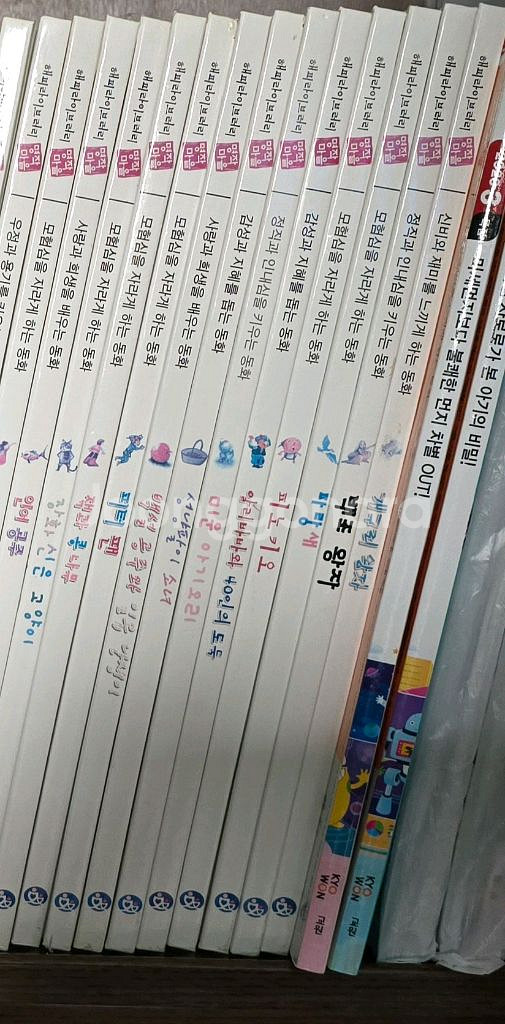 우정과 용기를
해피라이브러리 명작마을 모험심을 지라게 하는 동화 인어 공주
해피라이브러리 명작마을 사랑과 희생을 배우는 동화 장화 신은 고양이
해피라이브러리 명작마을 모험심을 지라게 하는 동화 잭과 콩나무
해피라이브러리 명작마을 모험심을 지라게 하는 동화 피터 팬
해피라이브러리 명작마을 모험심을 지라게 하는 동화 백설 공주와 일곱 난쟁이
해피라이브러리 명작마을 사랑과 희생을 배우는 동화 성냥팔이 소녀
해피라이브러리 명작마을 감성과 지혜를 돕는 동화 미운 아기오리
해피라이브러리 명작마을 정직과 인내심을 키우는 동화 알리바바와 40인의 도둑
해피라이브러리 명작마을 감성과 지혜를 돕는 동화 피노키오
해피라이브러리 명작마을 모험심을 지라게 하는 동화 파랑새
해피라이브러리 명작마을 정직과 인내심을 키우는 동화 백조 왕자
해피라이브러리 명작마을 신비와 재미를 느끼게 하는 동화 개구리 왕자
미세먼지보다 불쾌한 먼지 차별 OUT!
KYO WON 교원
본 아기의 비밀!
KYO WON 교원